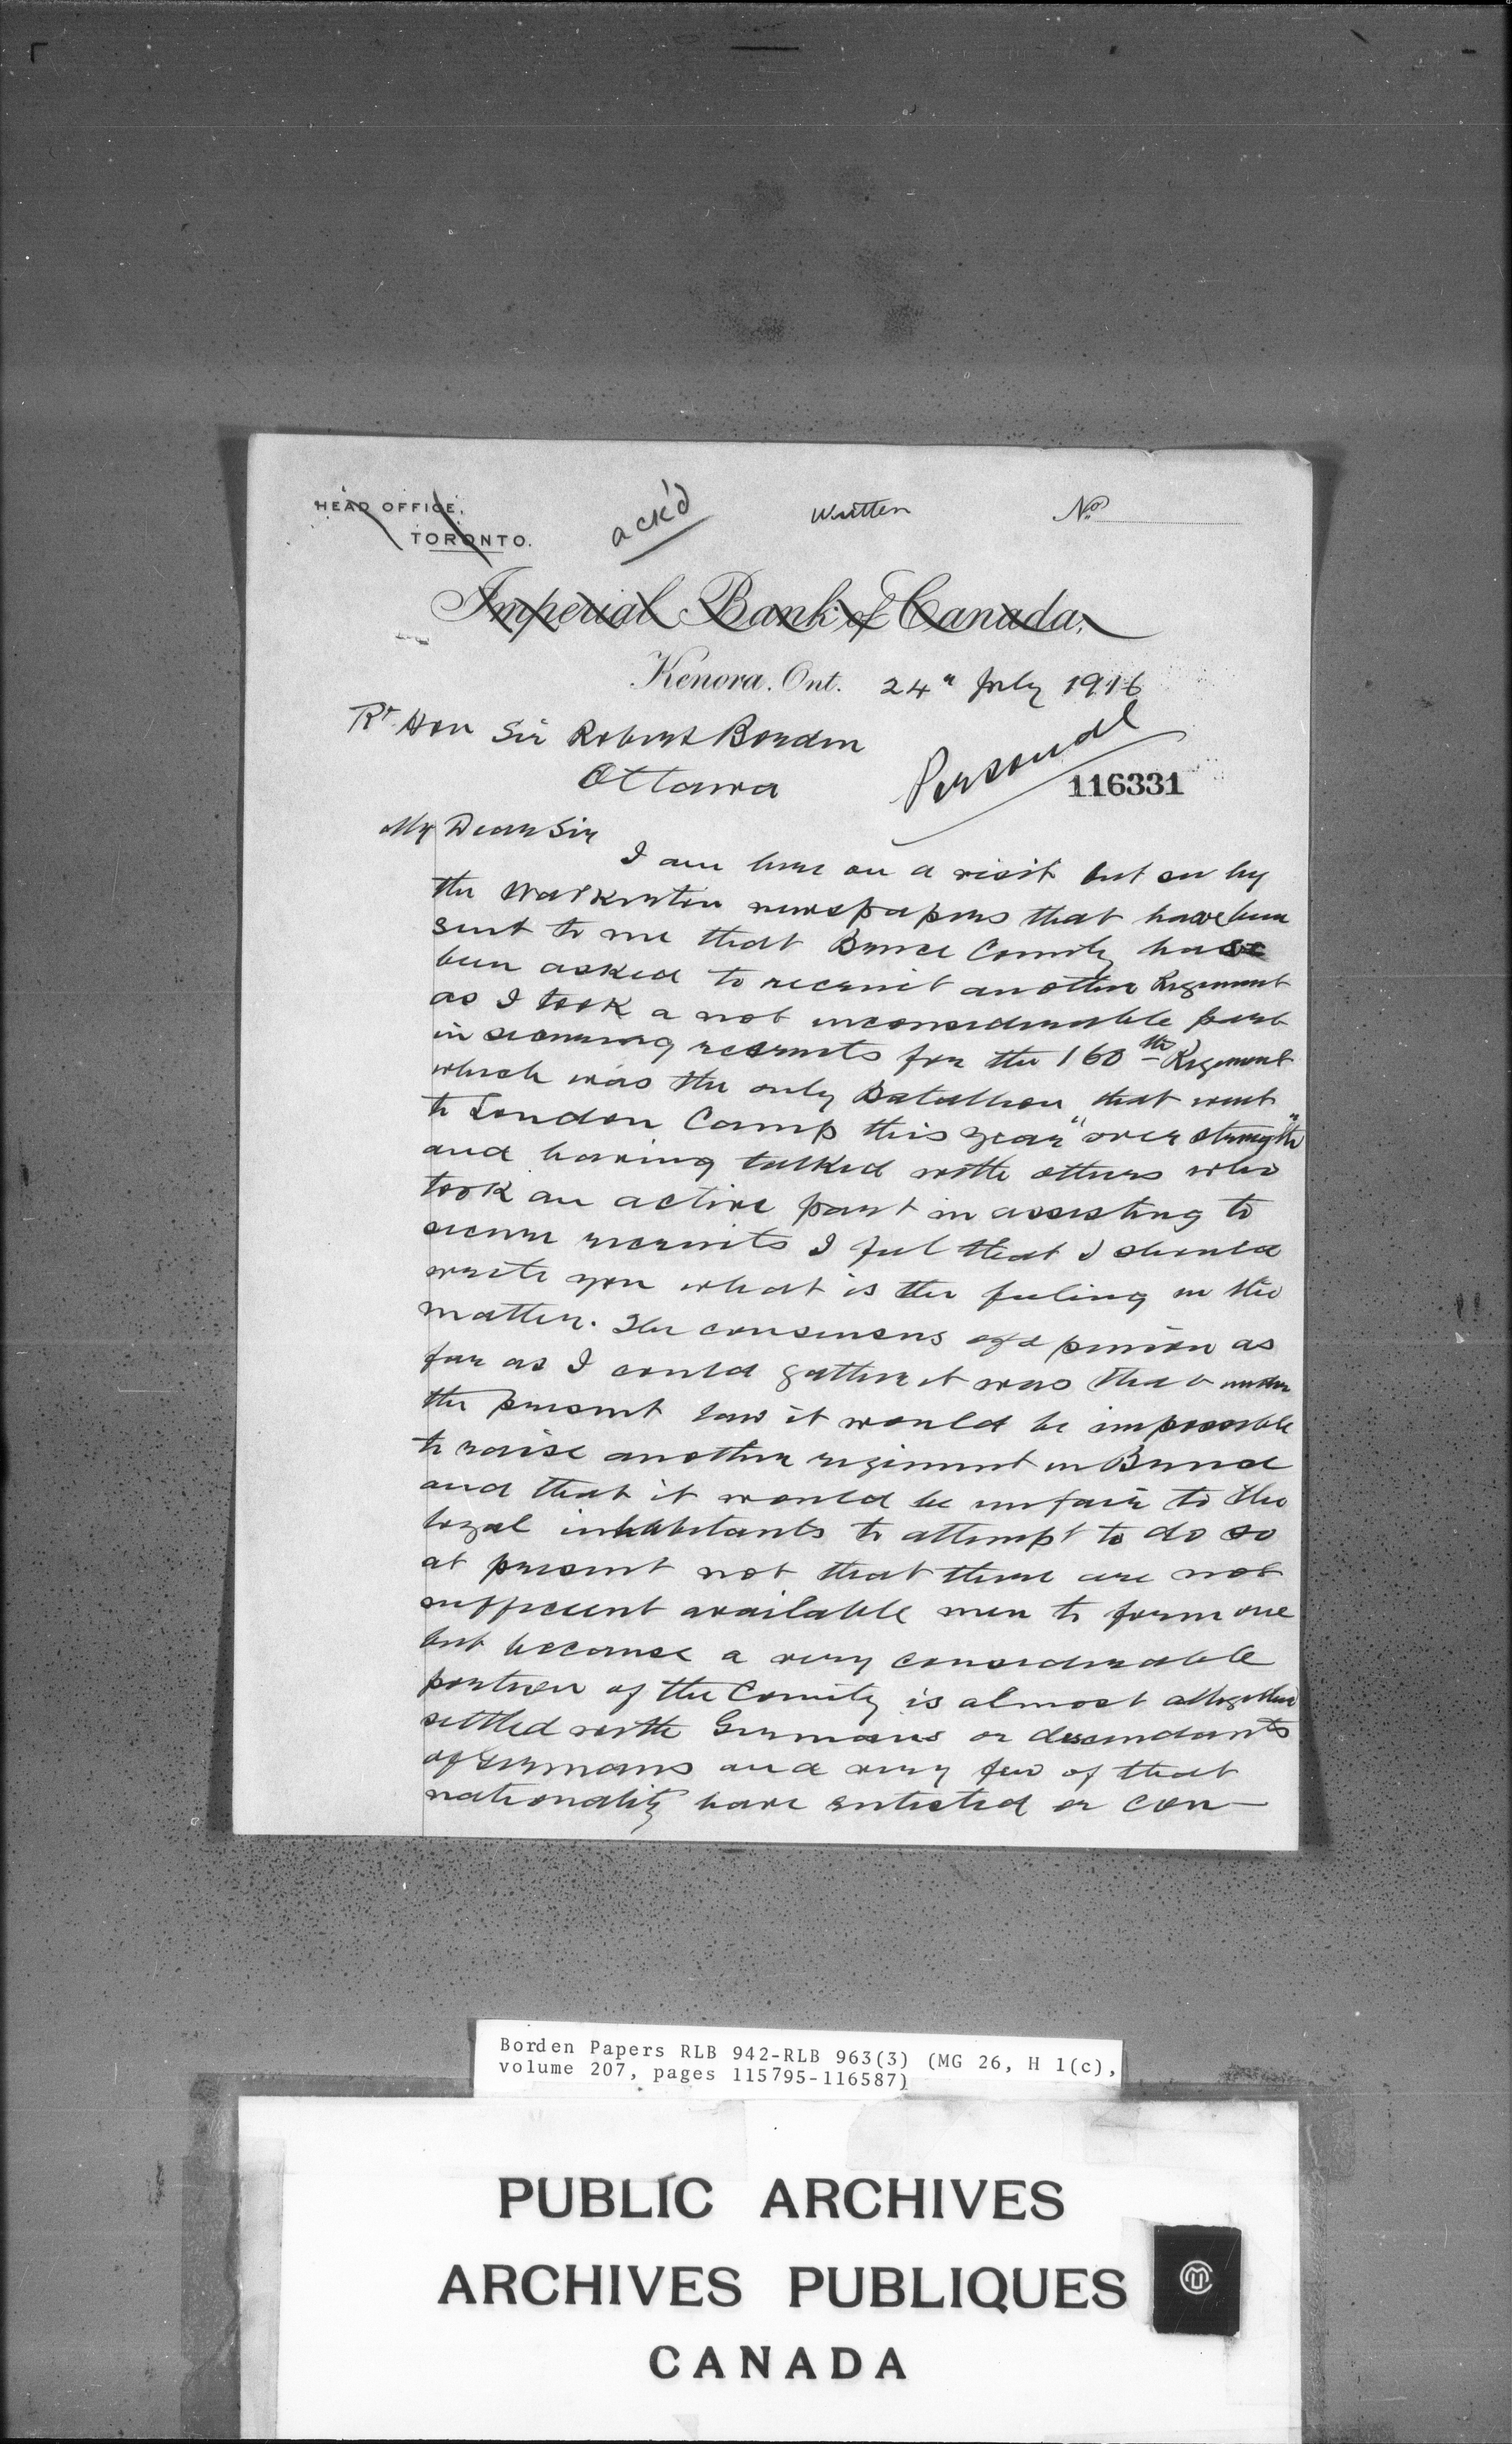 HEAD OFFICE,
TORONTO.
ack'd
Written
No
Imperial Bank of Canada,
Kenora. Ont. 24" July 1916
Rt Hon Sir Robert Borden
Ottawa
Personal
116331
My Dear Sir
I am here on a visit but see by
the Walkerton newspapers that have been
sent to me that Bruce County has
been asked to recruit another Regiment
as I took a not inconsiderable part
in securing recruits for the 160th Regiment
which was the only Batallion that went
to London Camp this year "over strength"
and having talked with others who
took an active part in assisting to
secure recruits I feel that I should
write you what is the feeling in the
matter. The consensus of opinion as
far as I could gather it was that under
the present law it would be impossible
to raise another regiment in Bruce
and that it would be unfair to the
loyal inhabitants to attempt to do so
at present not that there are not
sufficient available men to form one
but because a very considerable
portion of the County is almost altogether
settled with Germans or descendants
of Germans and very few of that
nationality have enlisted or con-
Borden Papers RLB 942-RLB 963(3) (MG 26, H 1(c),
volume 207, pages 115795-116587)
PUBLIC ARCHIVES
ARCHIVES PUBLIQUES
CANADA